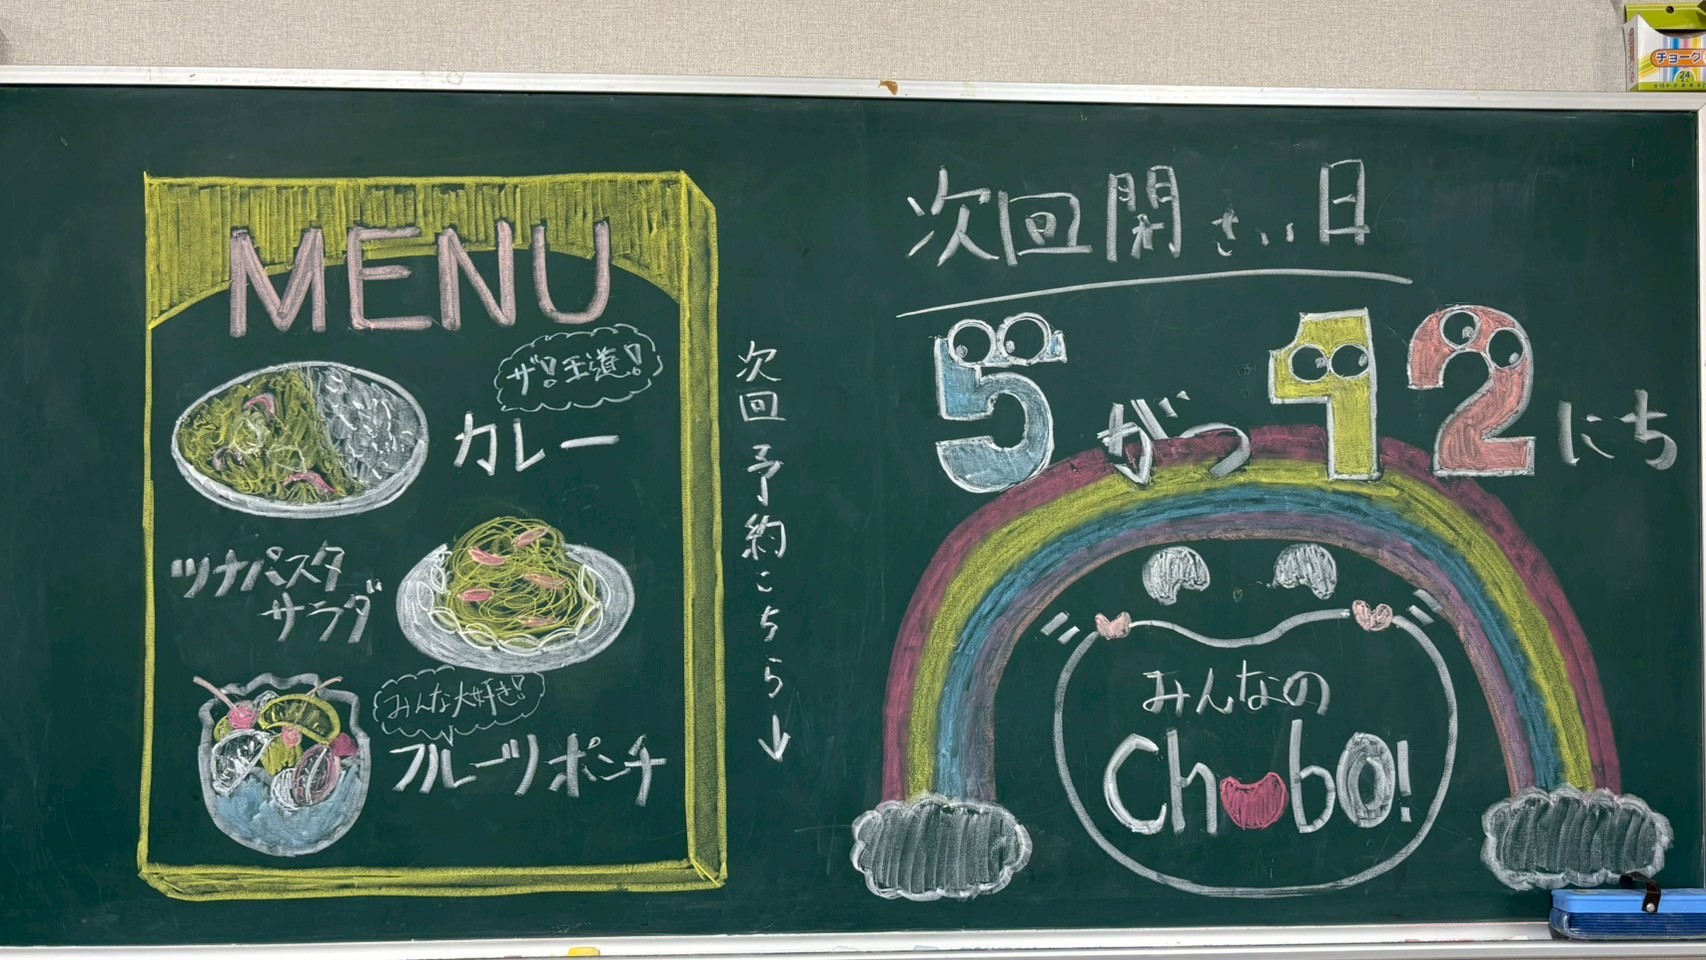 MENU
ザ!王道!
カレー
ツナパスタ
サラダ
みんな大好き!
フルーツポンチ
次回予約こちら↓
次回開さい日
5がつ12にち
みんなの
Chobo!
チョーク
24